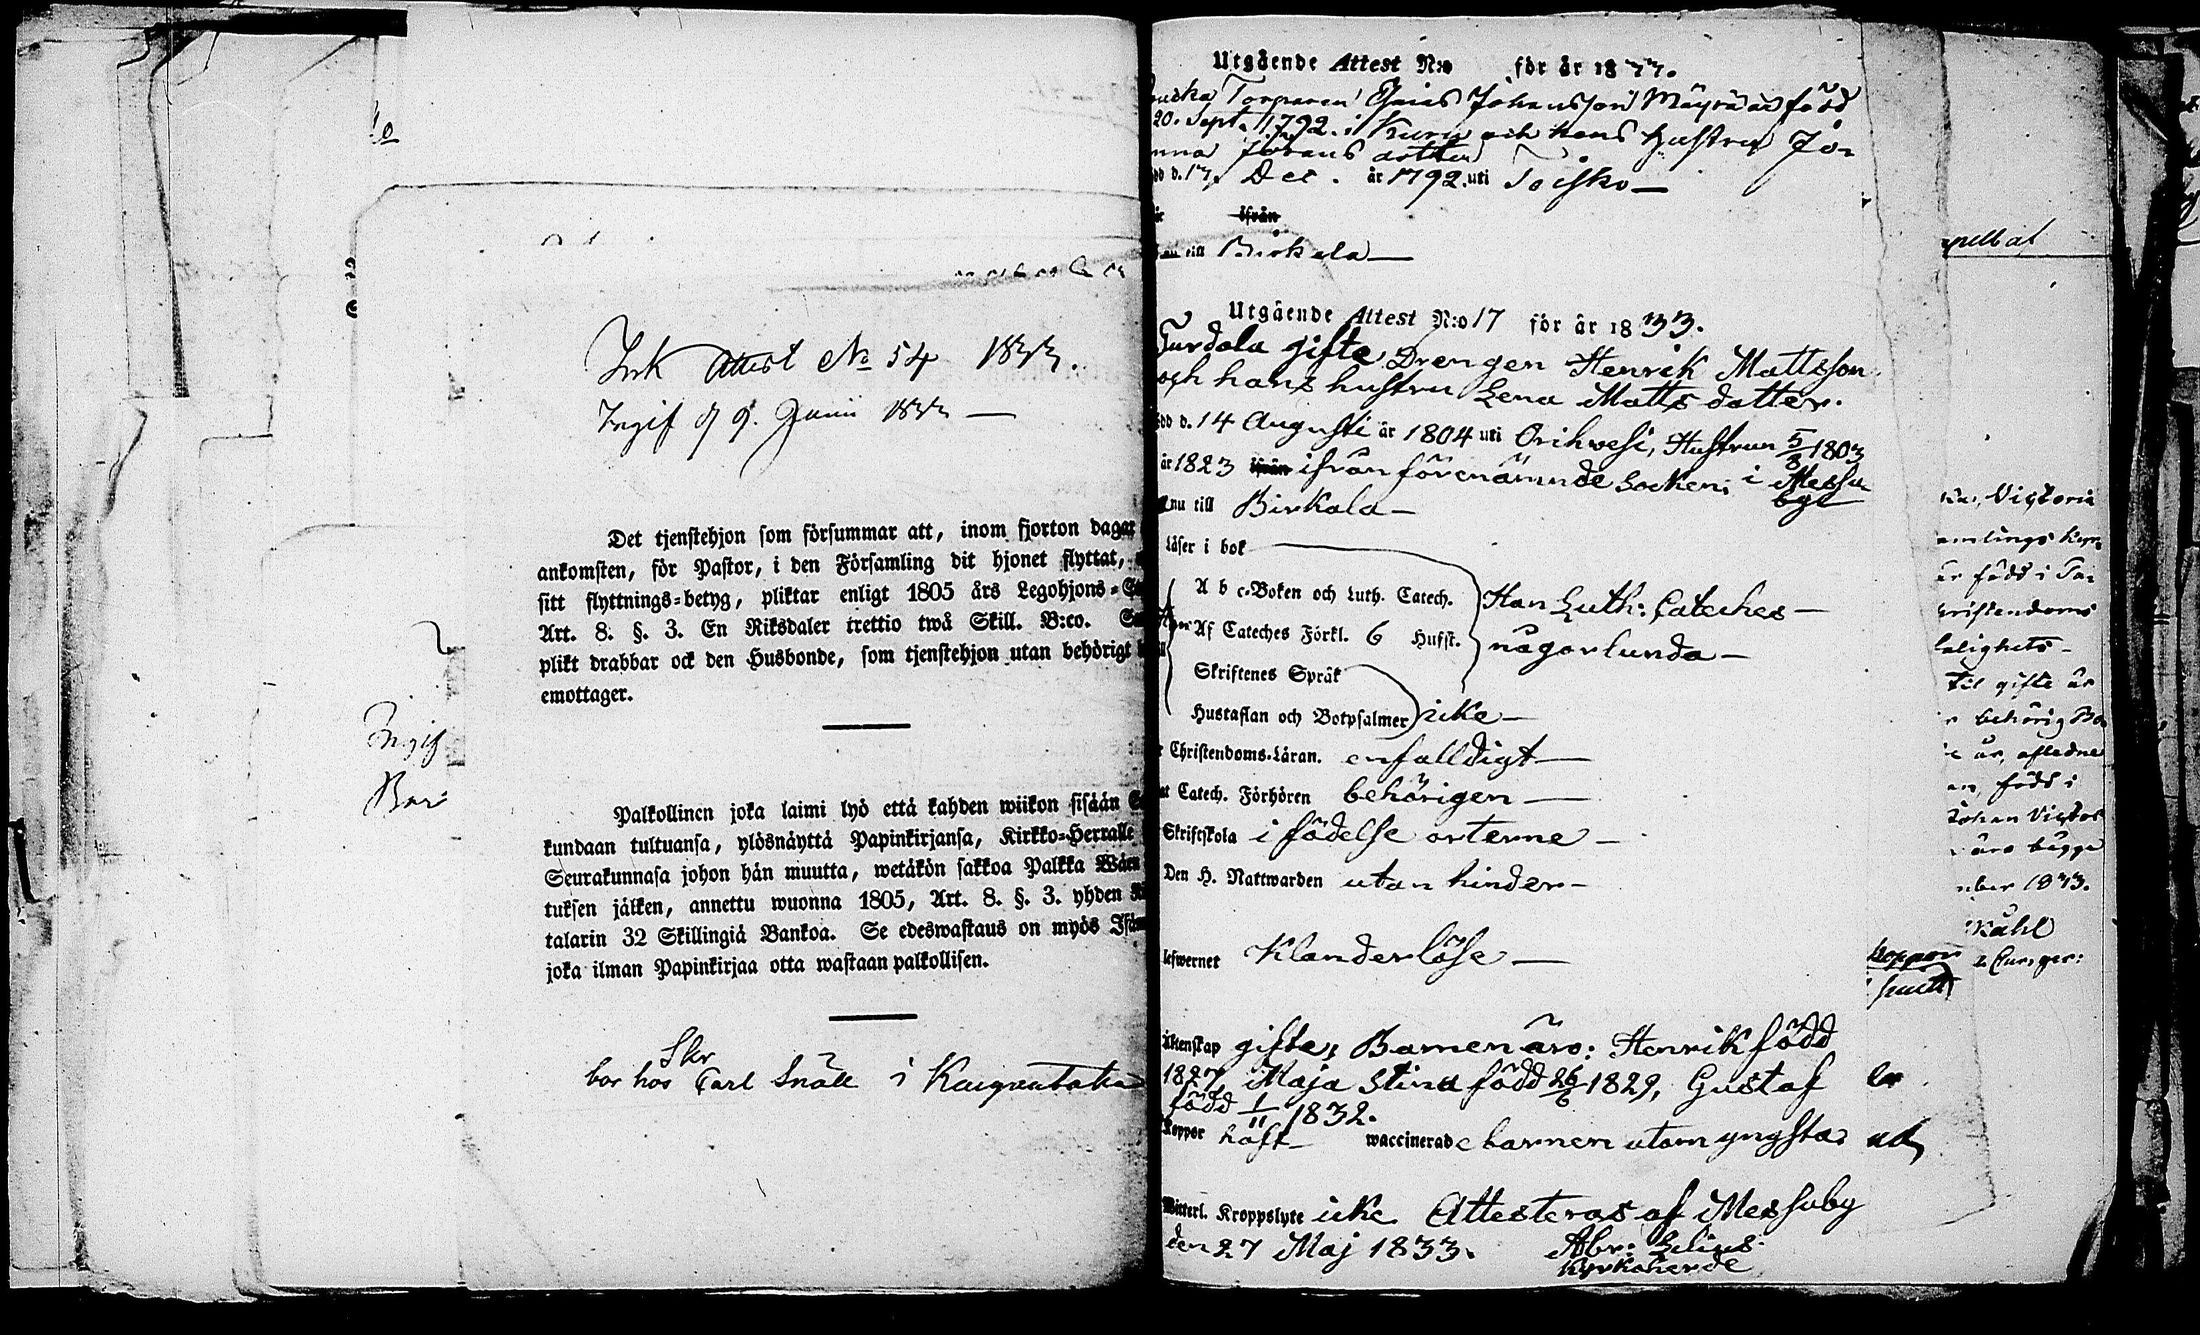 Ink Attest No 54 1833.
Ingif d 9. Junii 1833 —
Det tjenstehjon som försummar att, inom fjorton dagar
ankomsten, för Pastor, i den Församling dit hjonet flyttat,
sitt flyttnings-betyg, pliktar enligt 1805 års Legohjons-
Art. 8. §. 3. En Riksdaler trettio twå Skill. B:co.
plikt drabbar ock den Husbonde, som tjenstehjon utan behörigt
emottager.
Palkollinen joka laimi lyö että kahden wiikon sisään
kundaan tultuansa, ylösnäyttä Papinkirjansa, Kirkko-Herralle
Seurakunnasa johon hän muutta, wetäkön sakkoa Palkka
tuksen jälken, annettu wuonna 1805, Art. 8. §. 3. yhden
talarin 32 Skillingiä Bankoa. Se edeswastaus on myös
joka ilman Papinkirjaa otta wastaan palkollisen.
Skr
bor hos Carl Snäll i
Ingif
Utgående Attest N:o för år 1833.
Torparen Johansson född
20. Sept. 1792. i Kuru och hans hustru
d. 17. Dec. år 1792. uti Toisko —
ifrån
till Birkala —
Utgående Attest N:o 17 för år 1833.
gifte Drengen Henrik Mattsson
och hans hustru Lena Matts datter.
d. 14 Augusti år 1804 uti Orihwesi, Hustrun 5/8 1803
år 1823 ifrån ifrån förenämnde Socken; i Messu
by
nu till Birkala —
Läser i bok
A b c-Boken och Luth. Catech. Han Luth: Cateches —
Af Cateches Förkl. 6 Husst. någorlunda —
Skriftenes Språk
Hustaflan och Botpsalmer icke —
Christendoms-Läran. enfalldigt —
Catech. Förhören behörigen —
Skriftskola i födelse orterne —
Den H. Nattwarden utan hinder —
lefwernet Klanderlöse —
Äktenskap gifte, Barnen äro: Henrik född
1827, Maja Stina född 26/6 1829, Gustaf
född 1/11 1832.
Koppor haft waccinerade barnen utom yngsta
Kroppslyte icke Attesteras af Messuby
den 27 Maj 1833. Abr: Lilius
Kyrkoherde
Victoria
född i
till gifte är
behörig
är, aflidne
född i
Johan Victor
äro bägge
1833.
Koppor